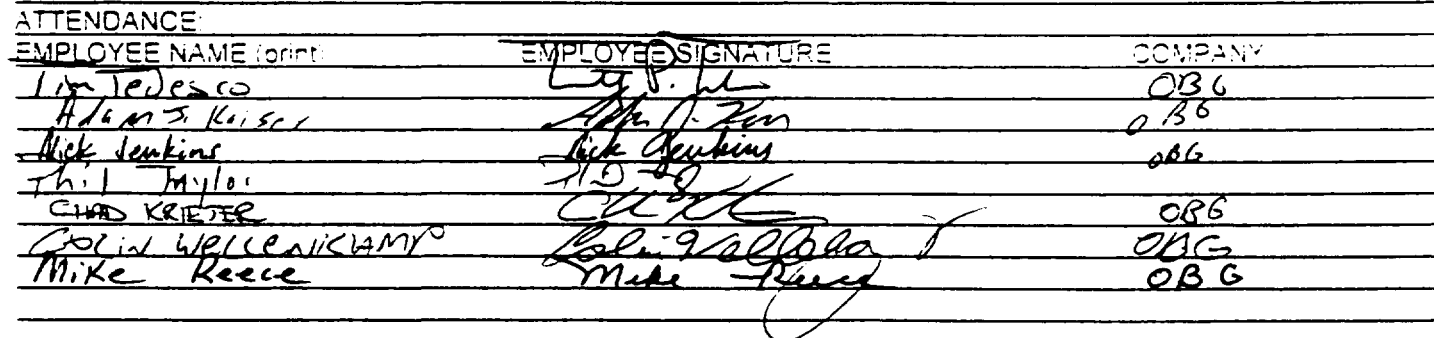 ATTENDANCE:
EMPLOYEE NAME (print) EMPLOYEE SIGNATURE COMPANY
Tim Tedesco OBG
Adam J. Kaiser OBG
Nick Jenkins Nick Jenkins OBG
Phil Taylor
CHAD KRIETER OBG
COLIN WELLENKAMP OBG
Mike Reece Mike Reece OBG